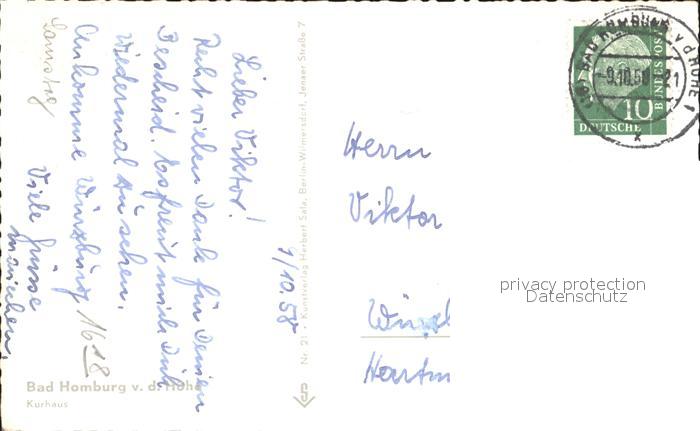 9/10.58
Lieber Viktor!
Recht vielen Dank für Deinen
Bescheid. Es freut mich Dich
wiedermal zu sehen.
Ankomme Würzburg 16 18
Samstag
Viele Grüsse
Bad Homburg v. d. Höhe
Kurhaus
Nr. 21 • Kunstverlag Herbert Sala, Berlin-Wilmersdorf, Jenaer Straße 7
Herrn
Viktor
privacy protection
Datenschutz
BAD HOMBURG v d HÖHE 1
-9.10.58-21
10
DEUTSCHE
BUNDESPOST